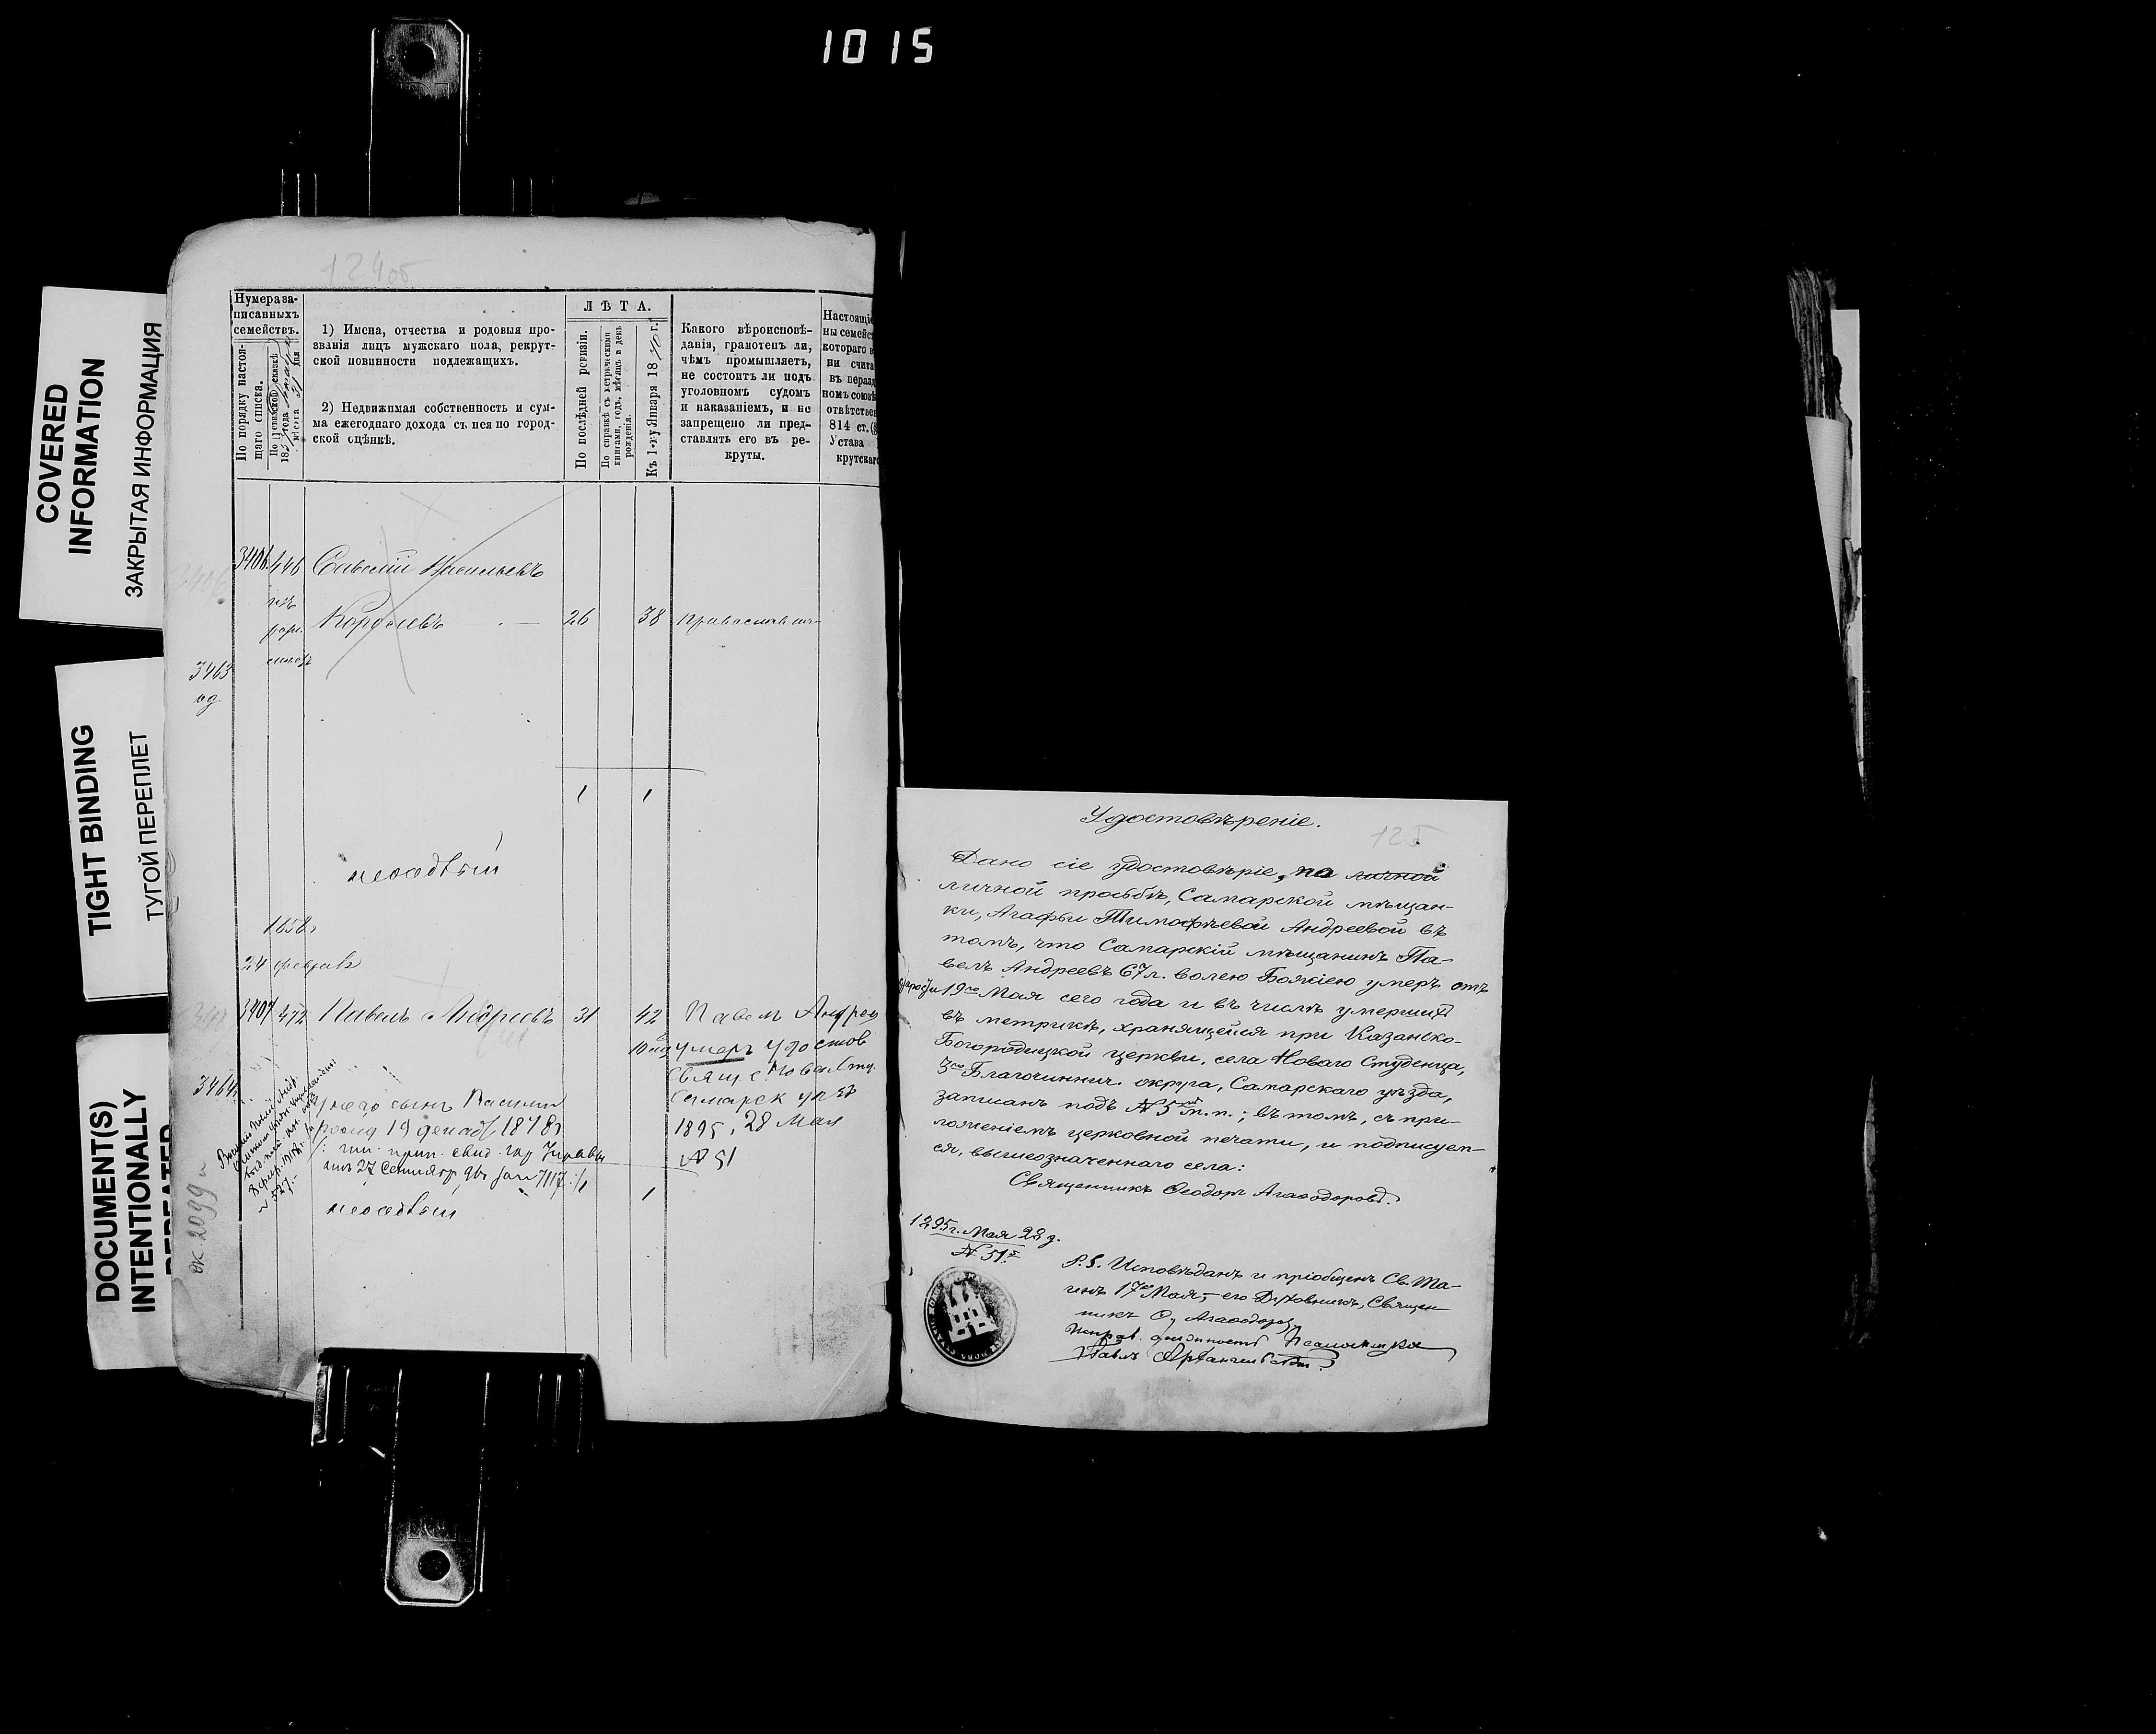 1015
COVERED
INFORMATION
ЗАКРЫТАЯ ИНФОРМАЦИЯ
TIGHT BINDING
ТУГОЙ ПЕРЕПЛЕТ
DOCUMENT(S)
INTENTIONALLY
REPEATED
124об
Нумера за-
писанныхъ
семействъ.
По порядку настоя-
щаго списка.
По ревизской сказкѣ
185 года
мѣсяца 31 дня
1) Имена, отчества и родовыя про-
званія лицъ мужскаго пола, рекрут-
ской повинности подлежащихъ.
2) Недвижимая собственность и сум-
ма ежегоднаго дохода съ нея по город-
ской оцѣнкѣ.
ЛѢТА.
По послѣдней ревизіи.
По справкѣ съ метрическими
книгами, годъ, мѣсяцъ и день
рожденія.
Къ 1-му Января 1870 г.
Какого вѣроисповѣ-
данія, грамотенъ ли,
чѣмъ промышляетъ,
не состоитъ ли подъ
уголовномъ судомъ
и наказаніемъ, и не
запрещено ли пред-
ставлять его въ ре-
круты.
Настоящіе
ны семейст
котораго в
ни счита
въ перазд
номъ союзѣ
отвѣтствен
814 ст. (§
Устава
крутскаго
3406 446 Савелій Васильевъ
Королевъ 26 38 православн
3463
од.
1 1
неосѣдлый
1858г
24 февраля
3407 472 Павелъ Андреевъ 31 42 Павел Андреев
умеръ Удостов
Свящ. Новаго Сту.
3464
Самарск уѣзд
у него сынъ Василій
1895, 28 Мая
рожд 19 декаб 1878г
№ 51
27 Сентября
1 1
неосѣдлый
ок 2099
125
Удостовѣреніе.
Дано сіе удостовѣріе, по личной
личной просьбѣ, Самарской мѣщан-
ки, Агафьи Тимофѣевой Андреевой въ
томъ, что Самарскій мѣщанинъ Па-
велъ Андреевъ 67 л. волею Божіею умеръ отъ
старости 19го Мая сего года и въ числѣ умершихъ
въ метрикѣ, хранящейся при Казанско-
Богородицкой церкви, села Новаго Студенца,
3го Благочиннич. округа, Самарскаго уѣзда,
записанъ подъ № 5 м. п.; въ томъ, съ при-
ложеніемъ церковной печати, и подписует-
ся, вышеозначеннаго села:
Священникъ Ѳеодоръ Агаѳодоровъ.
1895 г. Мая 28 д.
№ 51й
P.S. Исповѣданъ и пріобщенъ Св. Та-
инъ 17го Мая, – его Духовникъ, Священ-
никъ Ѳ. Агаѳодоровъ
Исправ. должность Псаломщика
Павелъ Архангельскій.